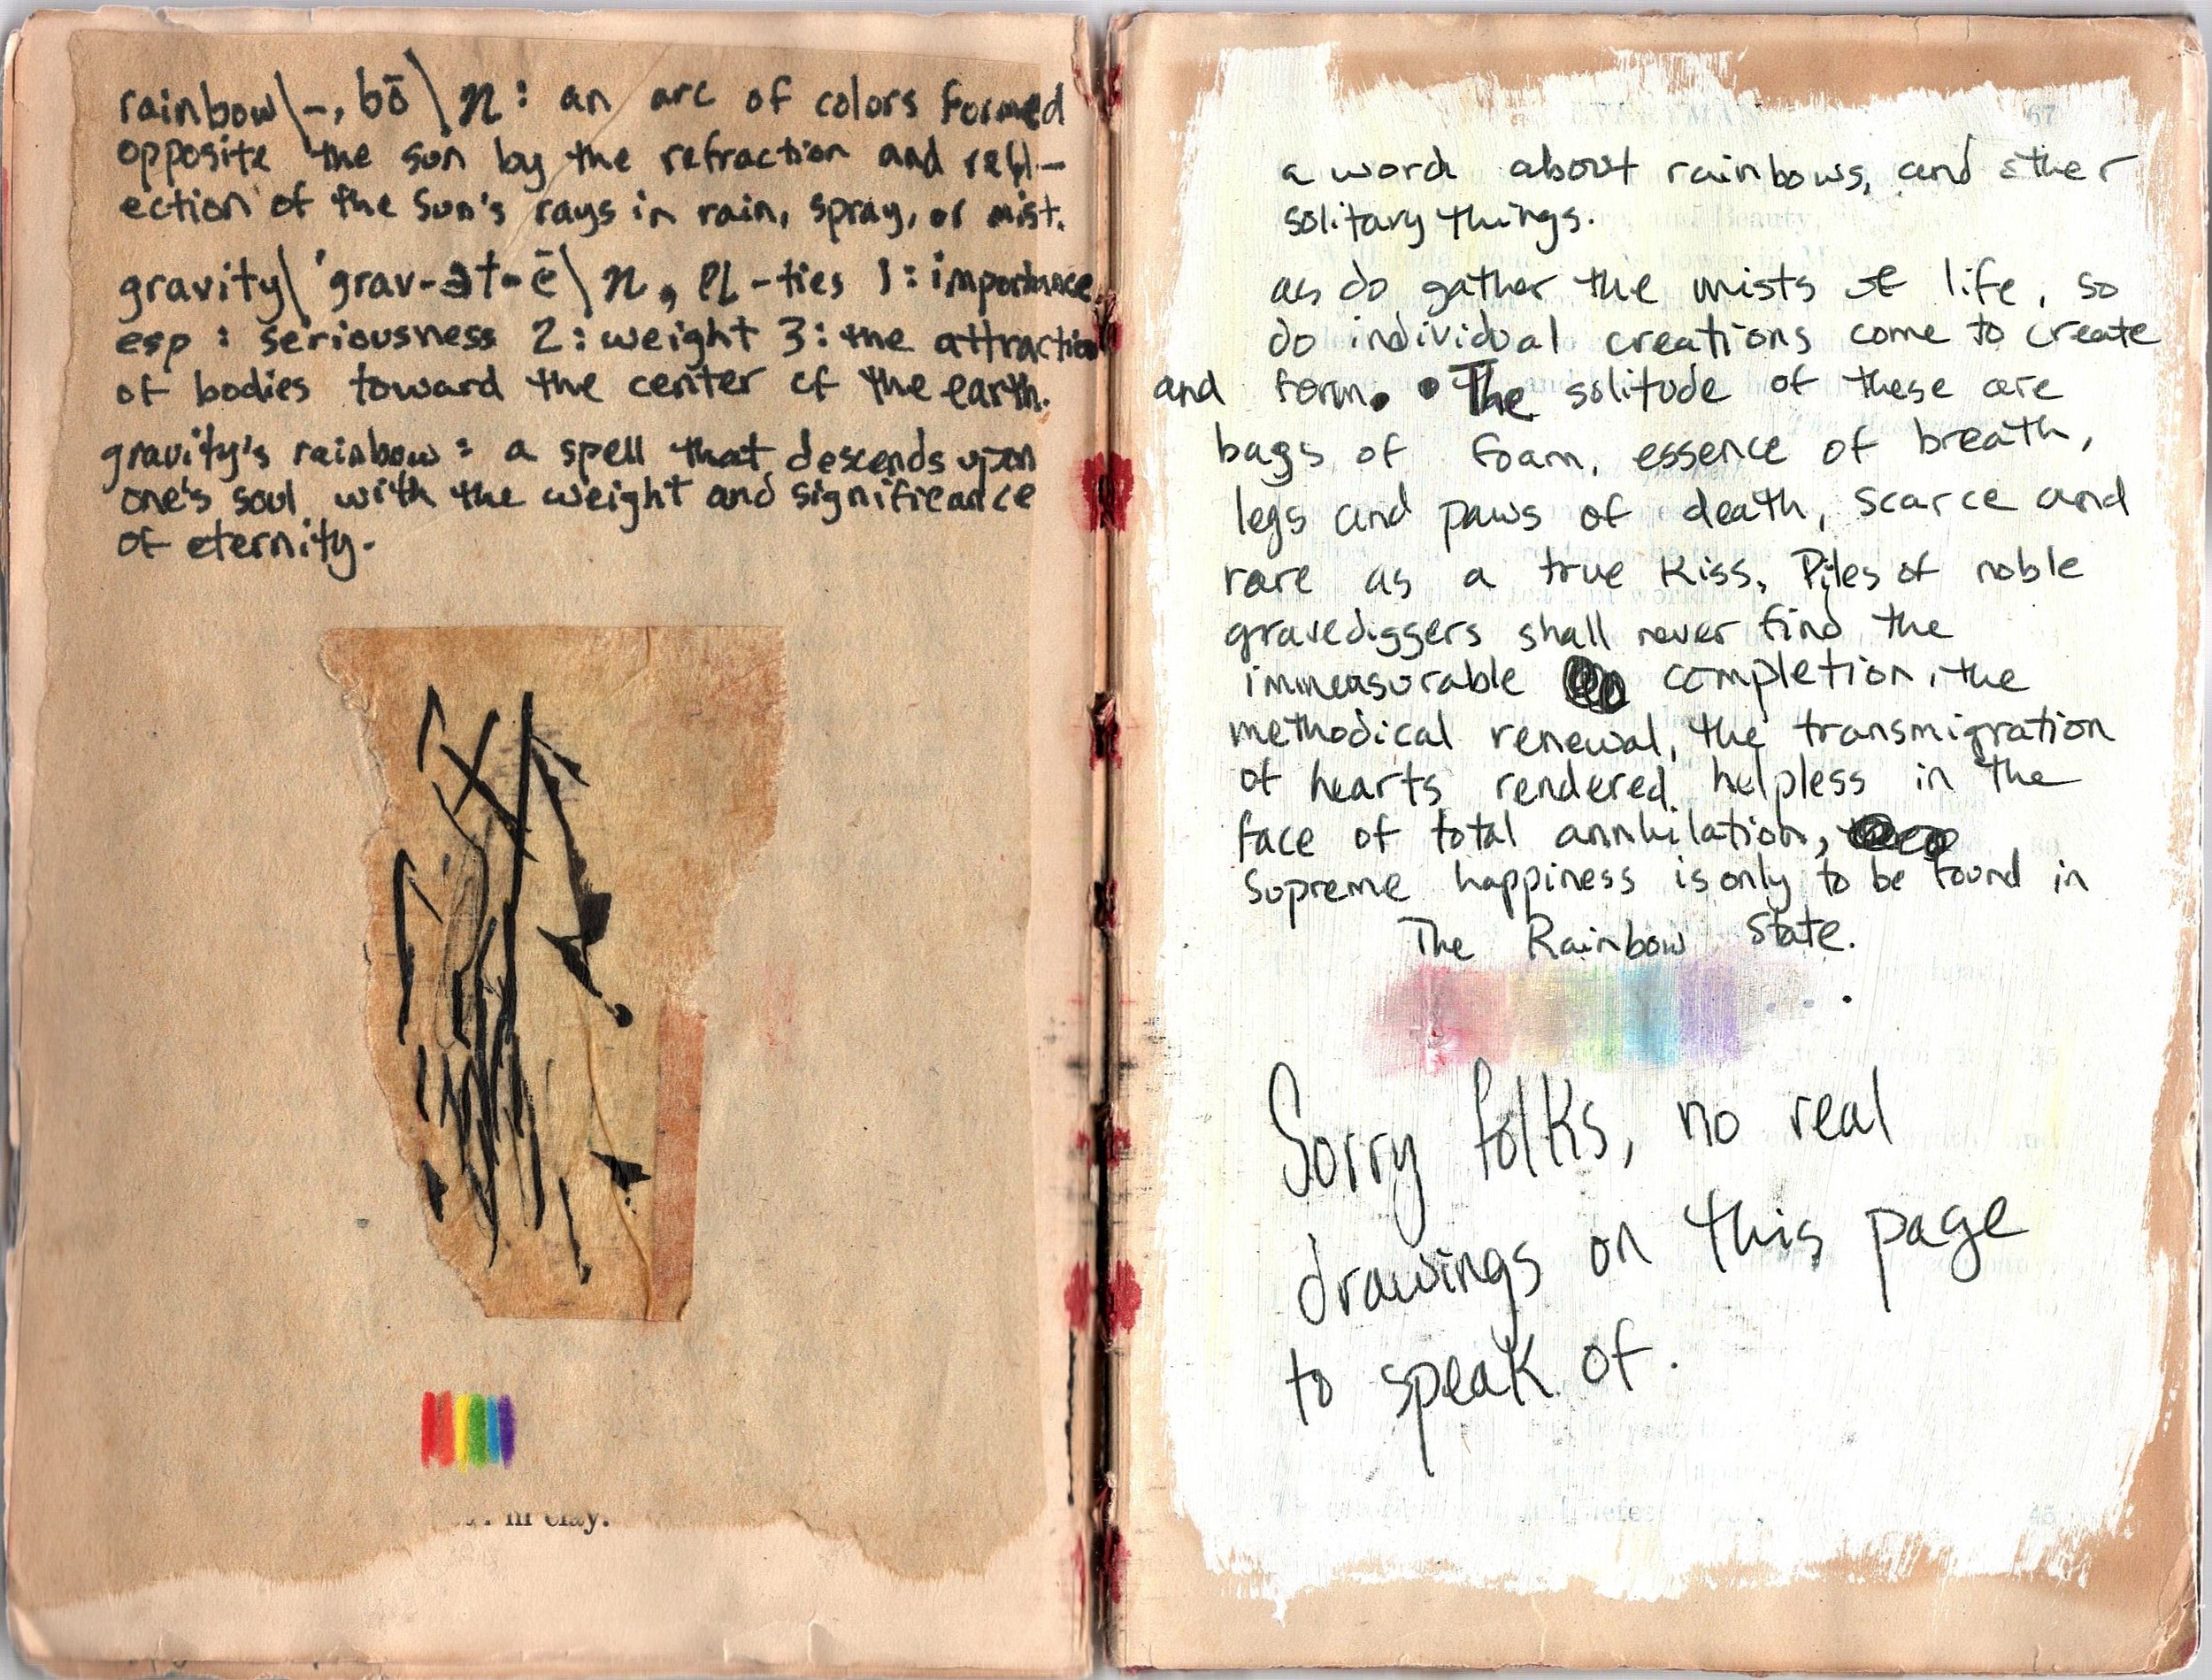 rainbow\-, bō\ n: an arc of colors formed
opposite the sun by the refraction and refl-
ection of the Sun's rays in rain, spray, or mist.
gravity\ 'grav-ət-ē\ n, pl -ties 1: importance
esp: seriousness 2: weight 3: the attraction
of bodies toward the center of the earth.
gravity's rainbow: a spell that descends upon
one's soul with the weight and significance
of eternity.
in clay.
a word about rainbows, and other
solitary things.
as do gather the mists of life, so
do individual creations come to create
and form. The solitude of these are
bags of foam, essence of breath,
legs and paws of death, scarce and
rare as a true kiss. Piles of noble
gravediggers shall never find the
immeasurable completion, the
methodical renewal, the transmigration
of hearts rendered helpless in the
face of total annhilation,
Supreme happiness is only to be found in
The Rainbow State.
Sorry folks, no real
drawings on this page
to speak of.